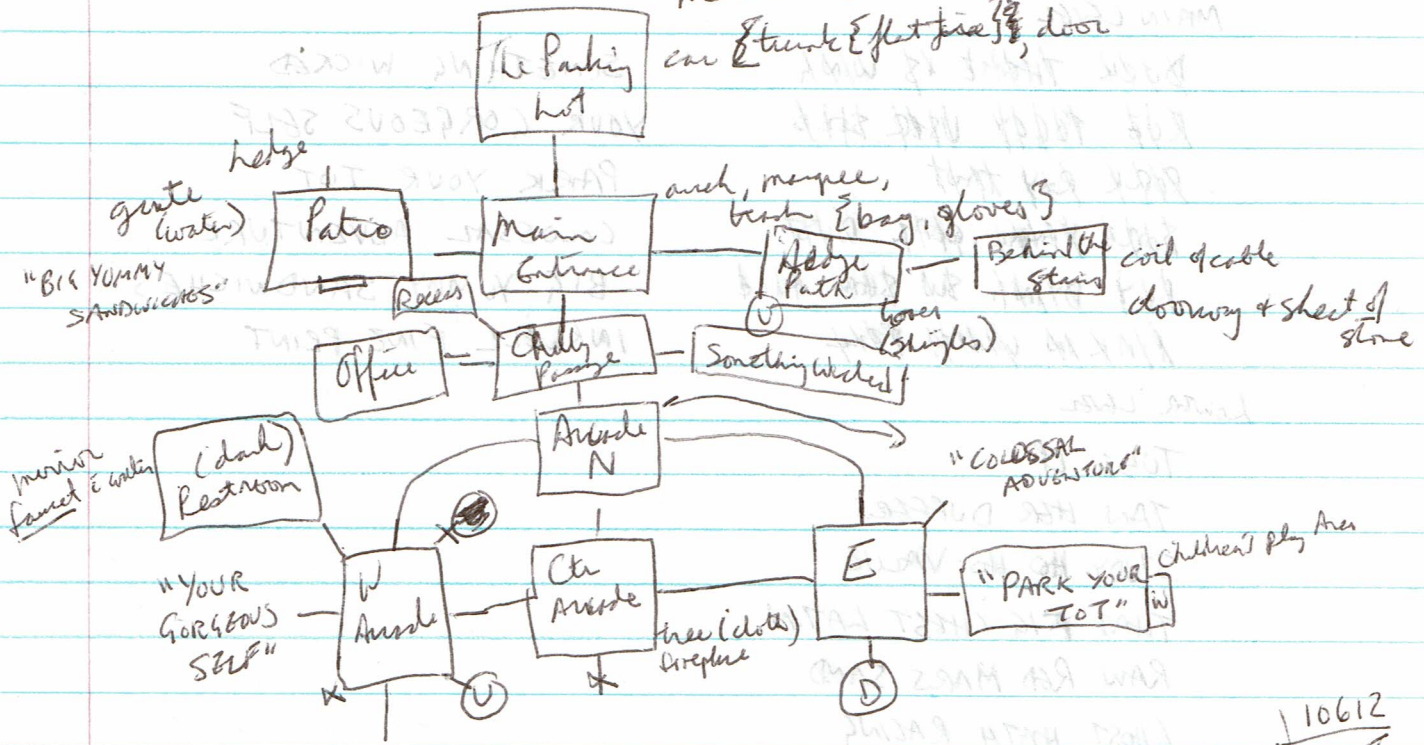 The Parking
Lot
car {trunk {flat tire}}, door
hedge
grate
(water)
Patio
Main
Entrance
arch, marquee,
trash {bag, gloves}
Hedge
Path
U
Behind the
Stairs
coil of cable
doorway & sheet of
stone
"BIG YUMMY
SANDWICHES"
Recess
Office
Chilly
Passage
Something Wicked
(shingles)
Arcade
N
mirror
faucet
(dark)
Restroom
"COLOSSAL
ADVENTURE"
"YOUR
GORGEOUS
SELF"
W
Arcade
U
Ctr
Arcade
tree (cloth)
fireplace
E
D
"PARK YOUR
TOT"
Children's Play Area
10612